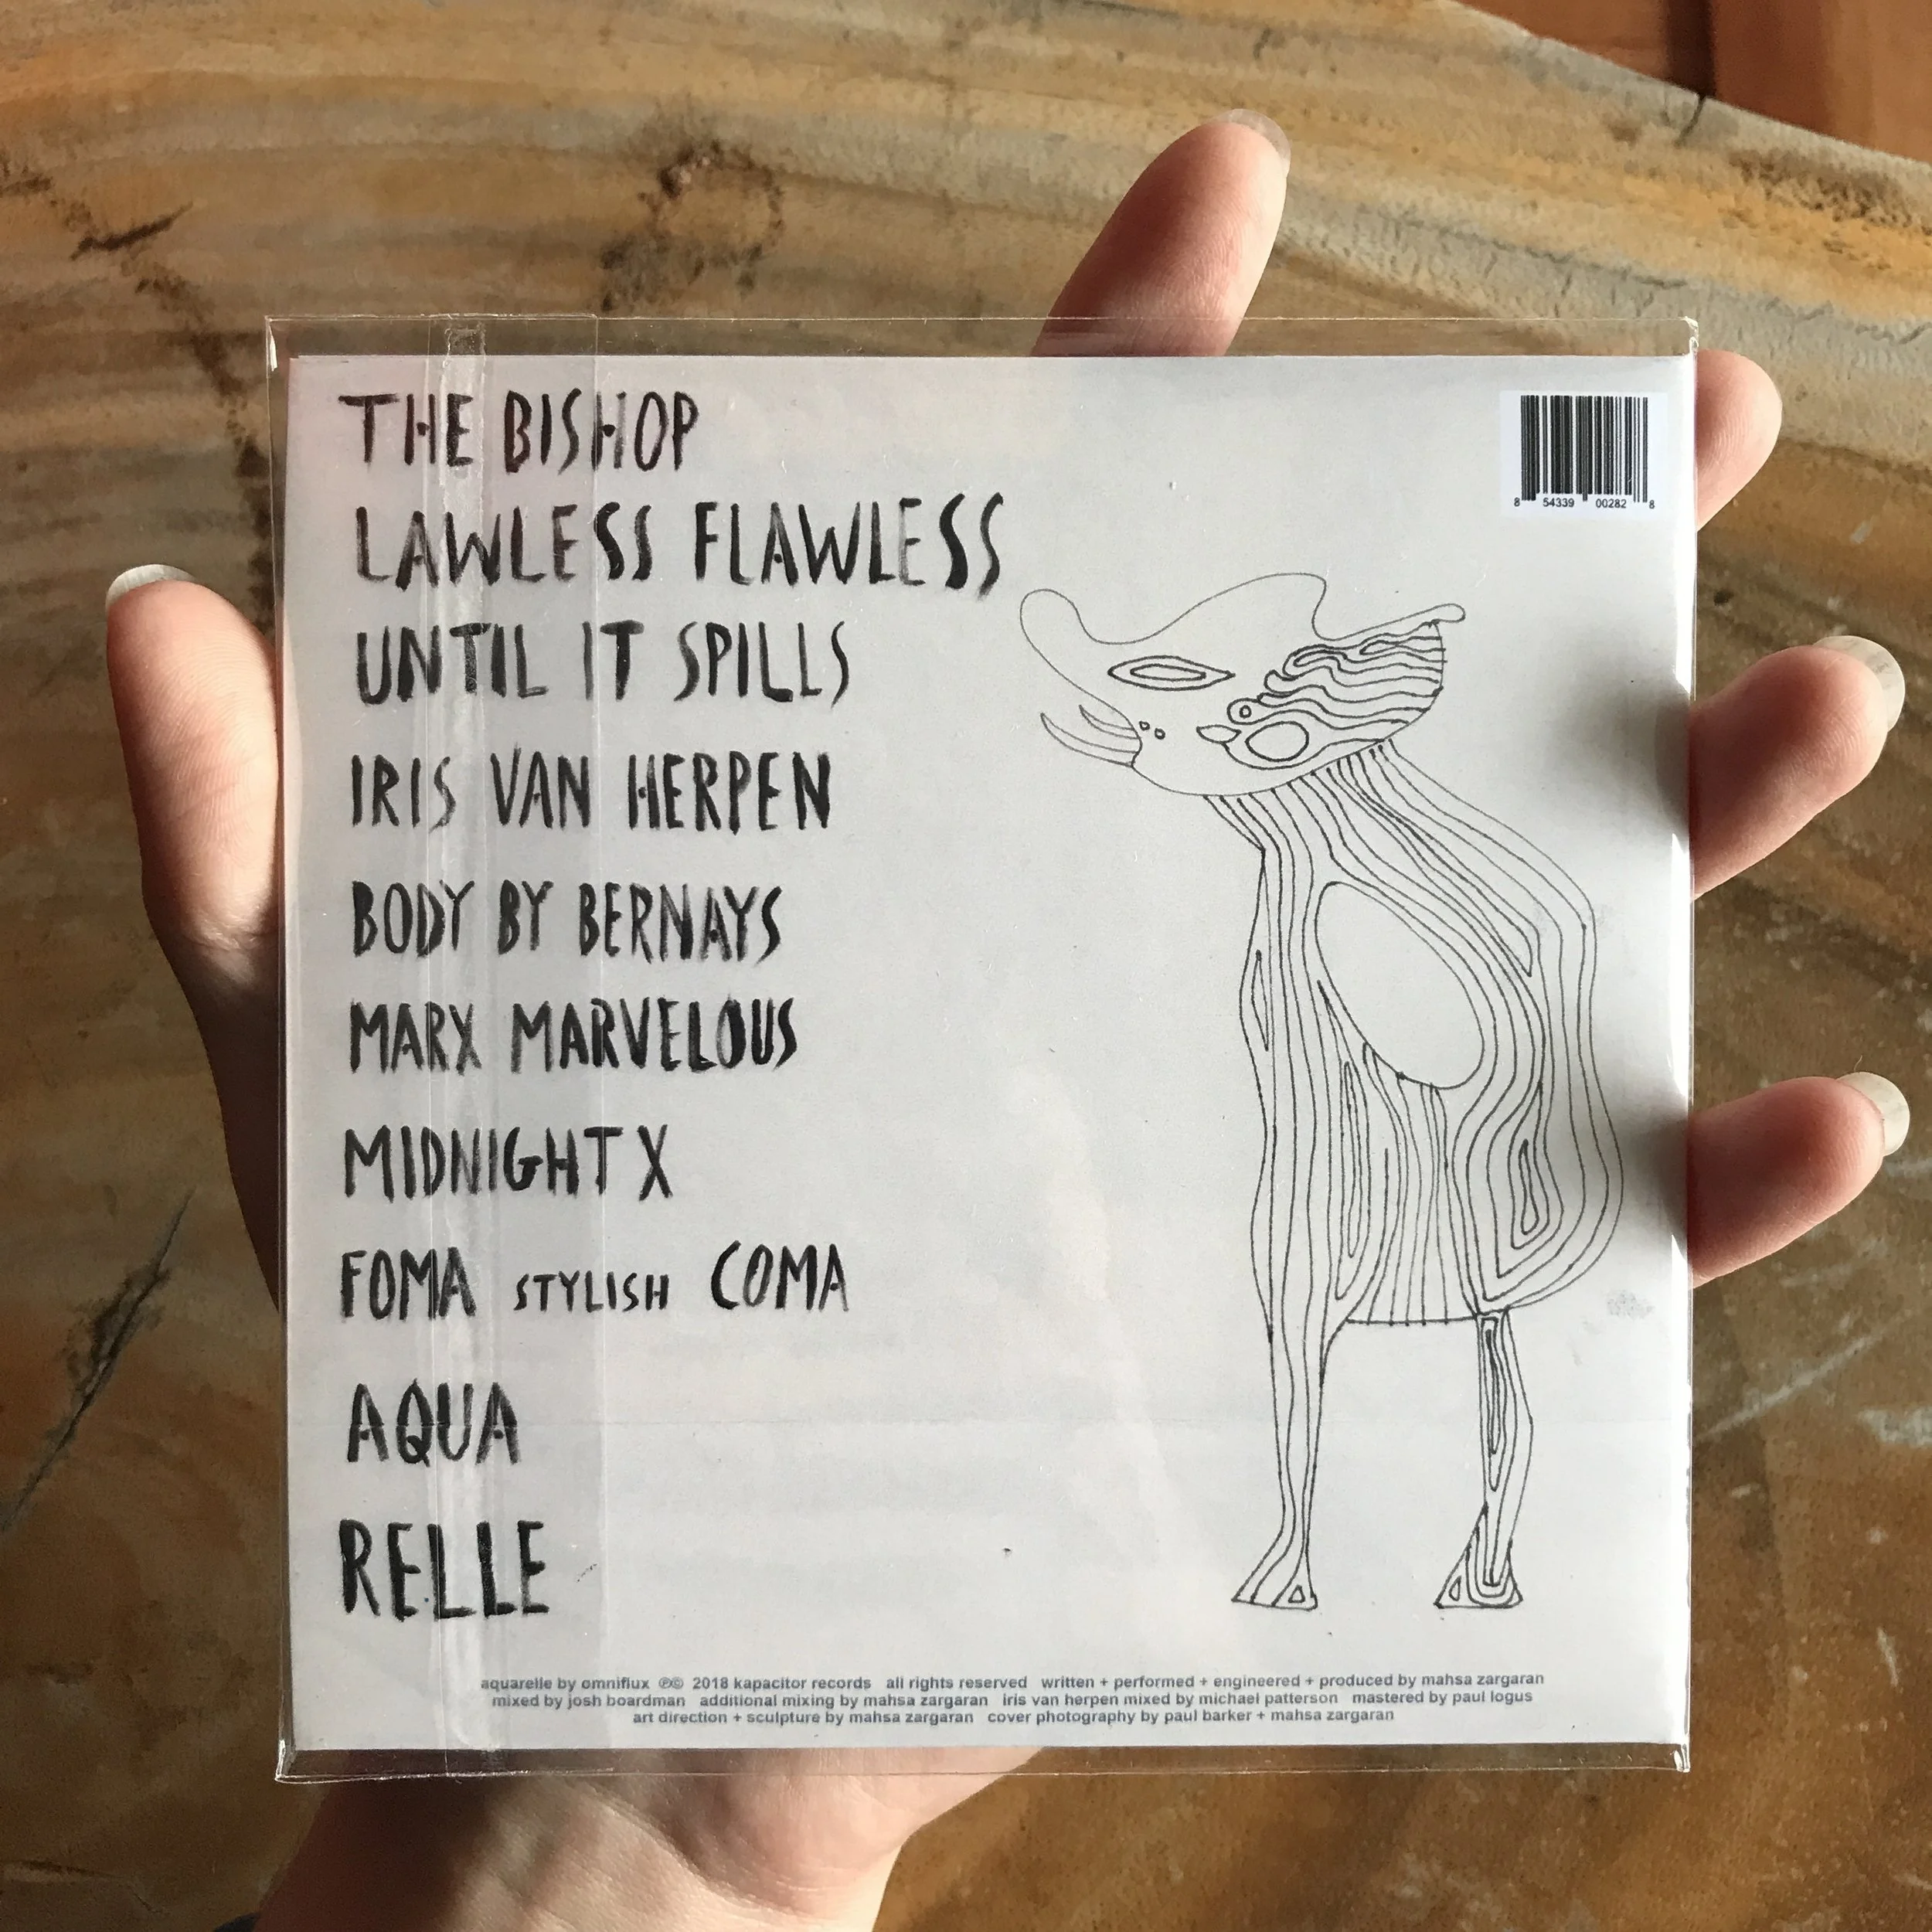 THE BISHOP
LAWLESS FLAWLESS
UNTIL IT SPILLS
IRIS VAN HERPEN
BODY BY BERNAYS
MARX MARVELOUS
MIDNIGHT X
FOMA STYLISH COMA
AQUA
RELLE
8 54339 00282 8
aquarelle by omniflux ℗© 2018 kapacitor records all rights reserved written + performed + engineered + produced by mahsa zargaran
mixed by josh boardman additional mixing by mahsa zargaran iris van herpen mixed by michael patterson mastered by paul logus
art direction + sculpture by mahsa zargaran cover photography by paul barker + mahsa zargaran